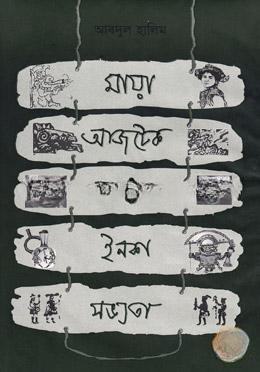 আবদুল হালিম
মায়া
আজটেক
ও
ইনকা
সভ্যতা